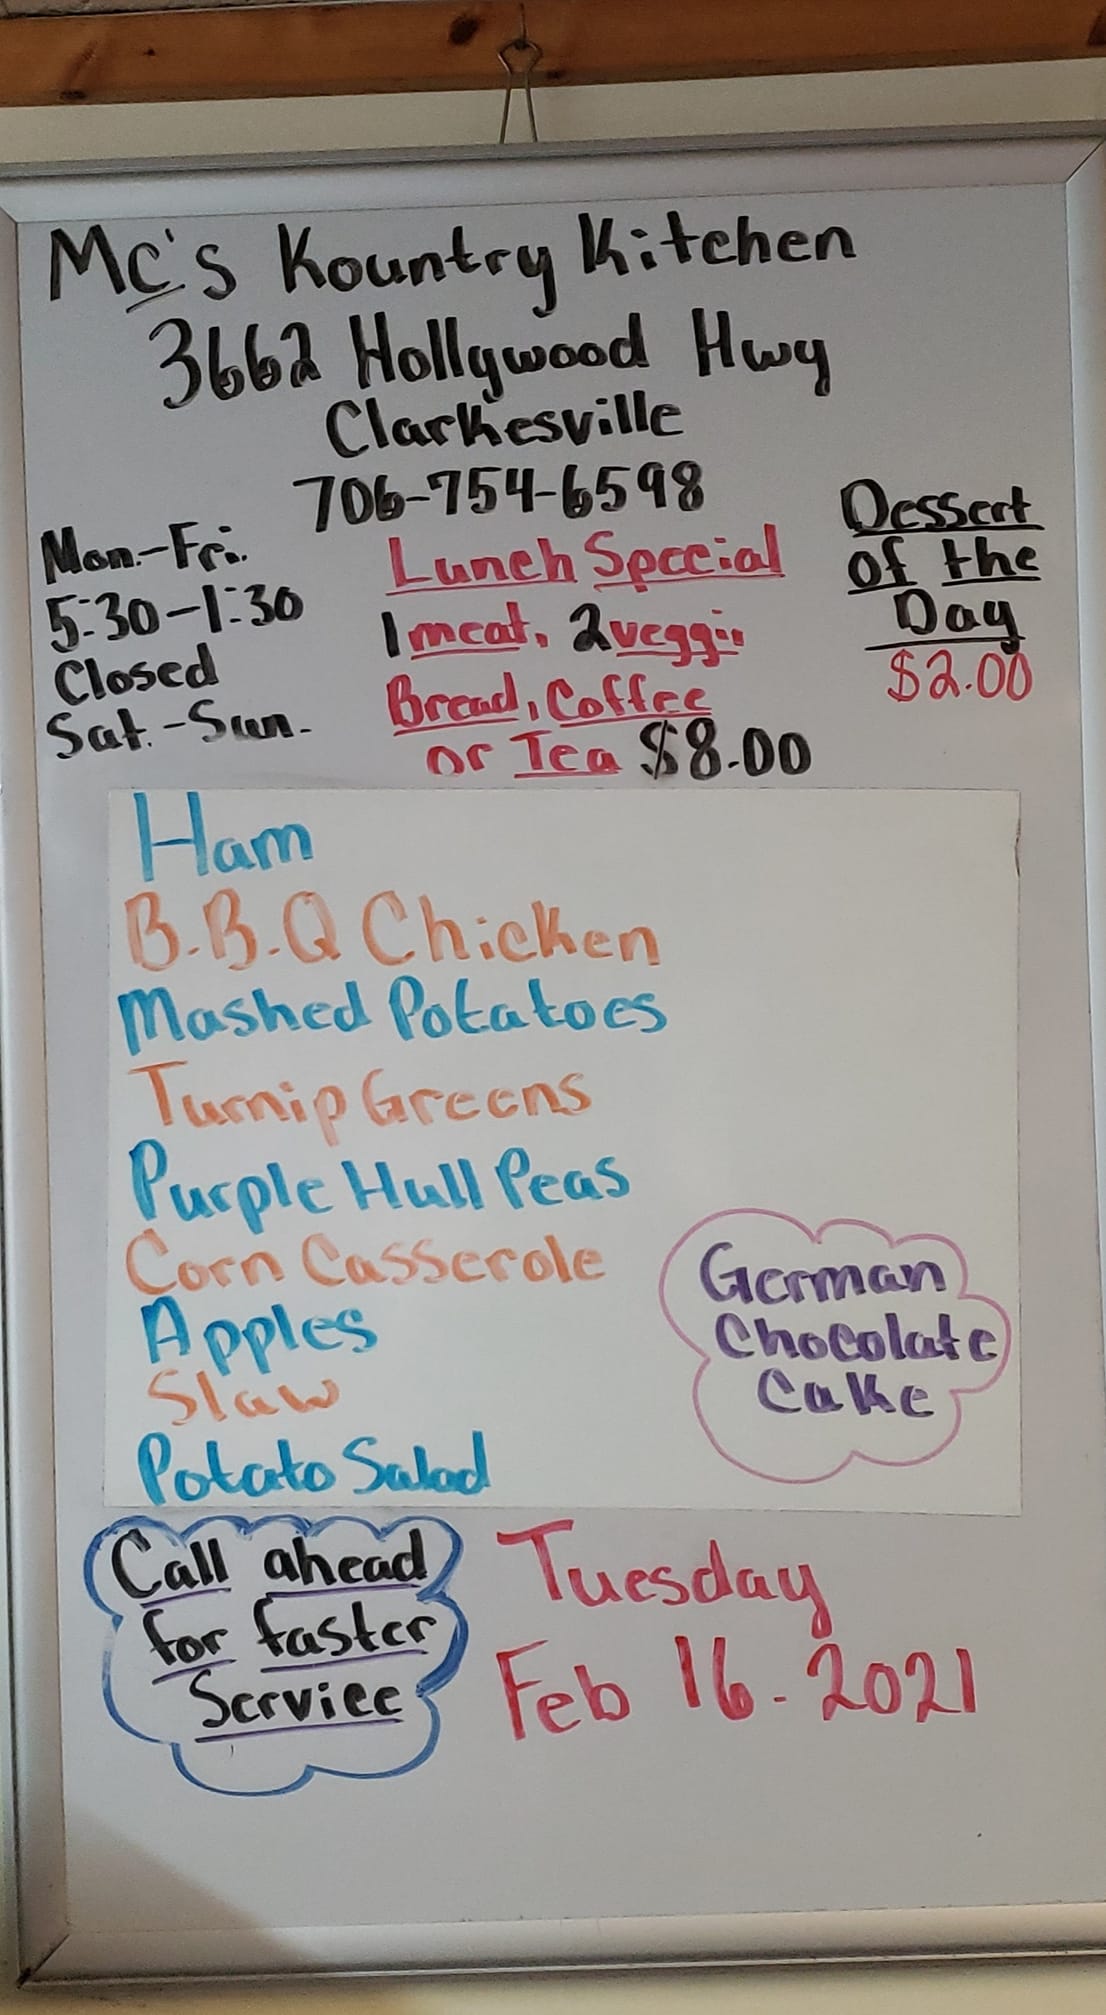 Mc's Kountry Kitchen
3662 Hollywood Hwy
Clarkesville
706-754-6598
Mon.-Fri.
5:30-1:30
Closed
Sat.-Sun.
Lunch Special
1 meat, 2 veggie
Bread, Coffee
or Tea $8.00
Dessert
of the
Day
$2.00
Ham
B.B.Q Chicken
Mashed Potatoes
Turnip Greens
Purple Hull Peas
Corn Casserole
Apples
Slaw
Potato Salad
German
Chocolate
Cake
Call ahead
for faster
Service
Tuesday
Feb 16-2021